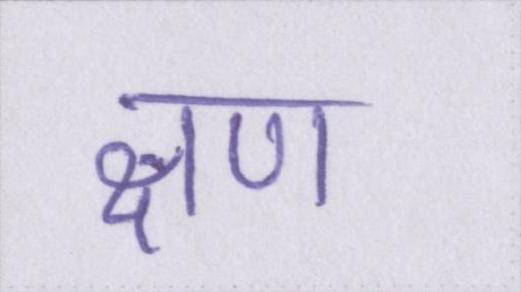 क्षण